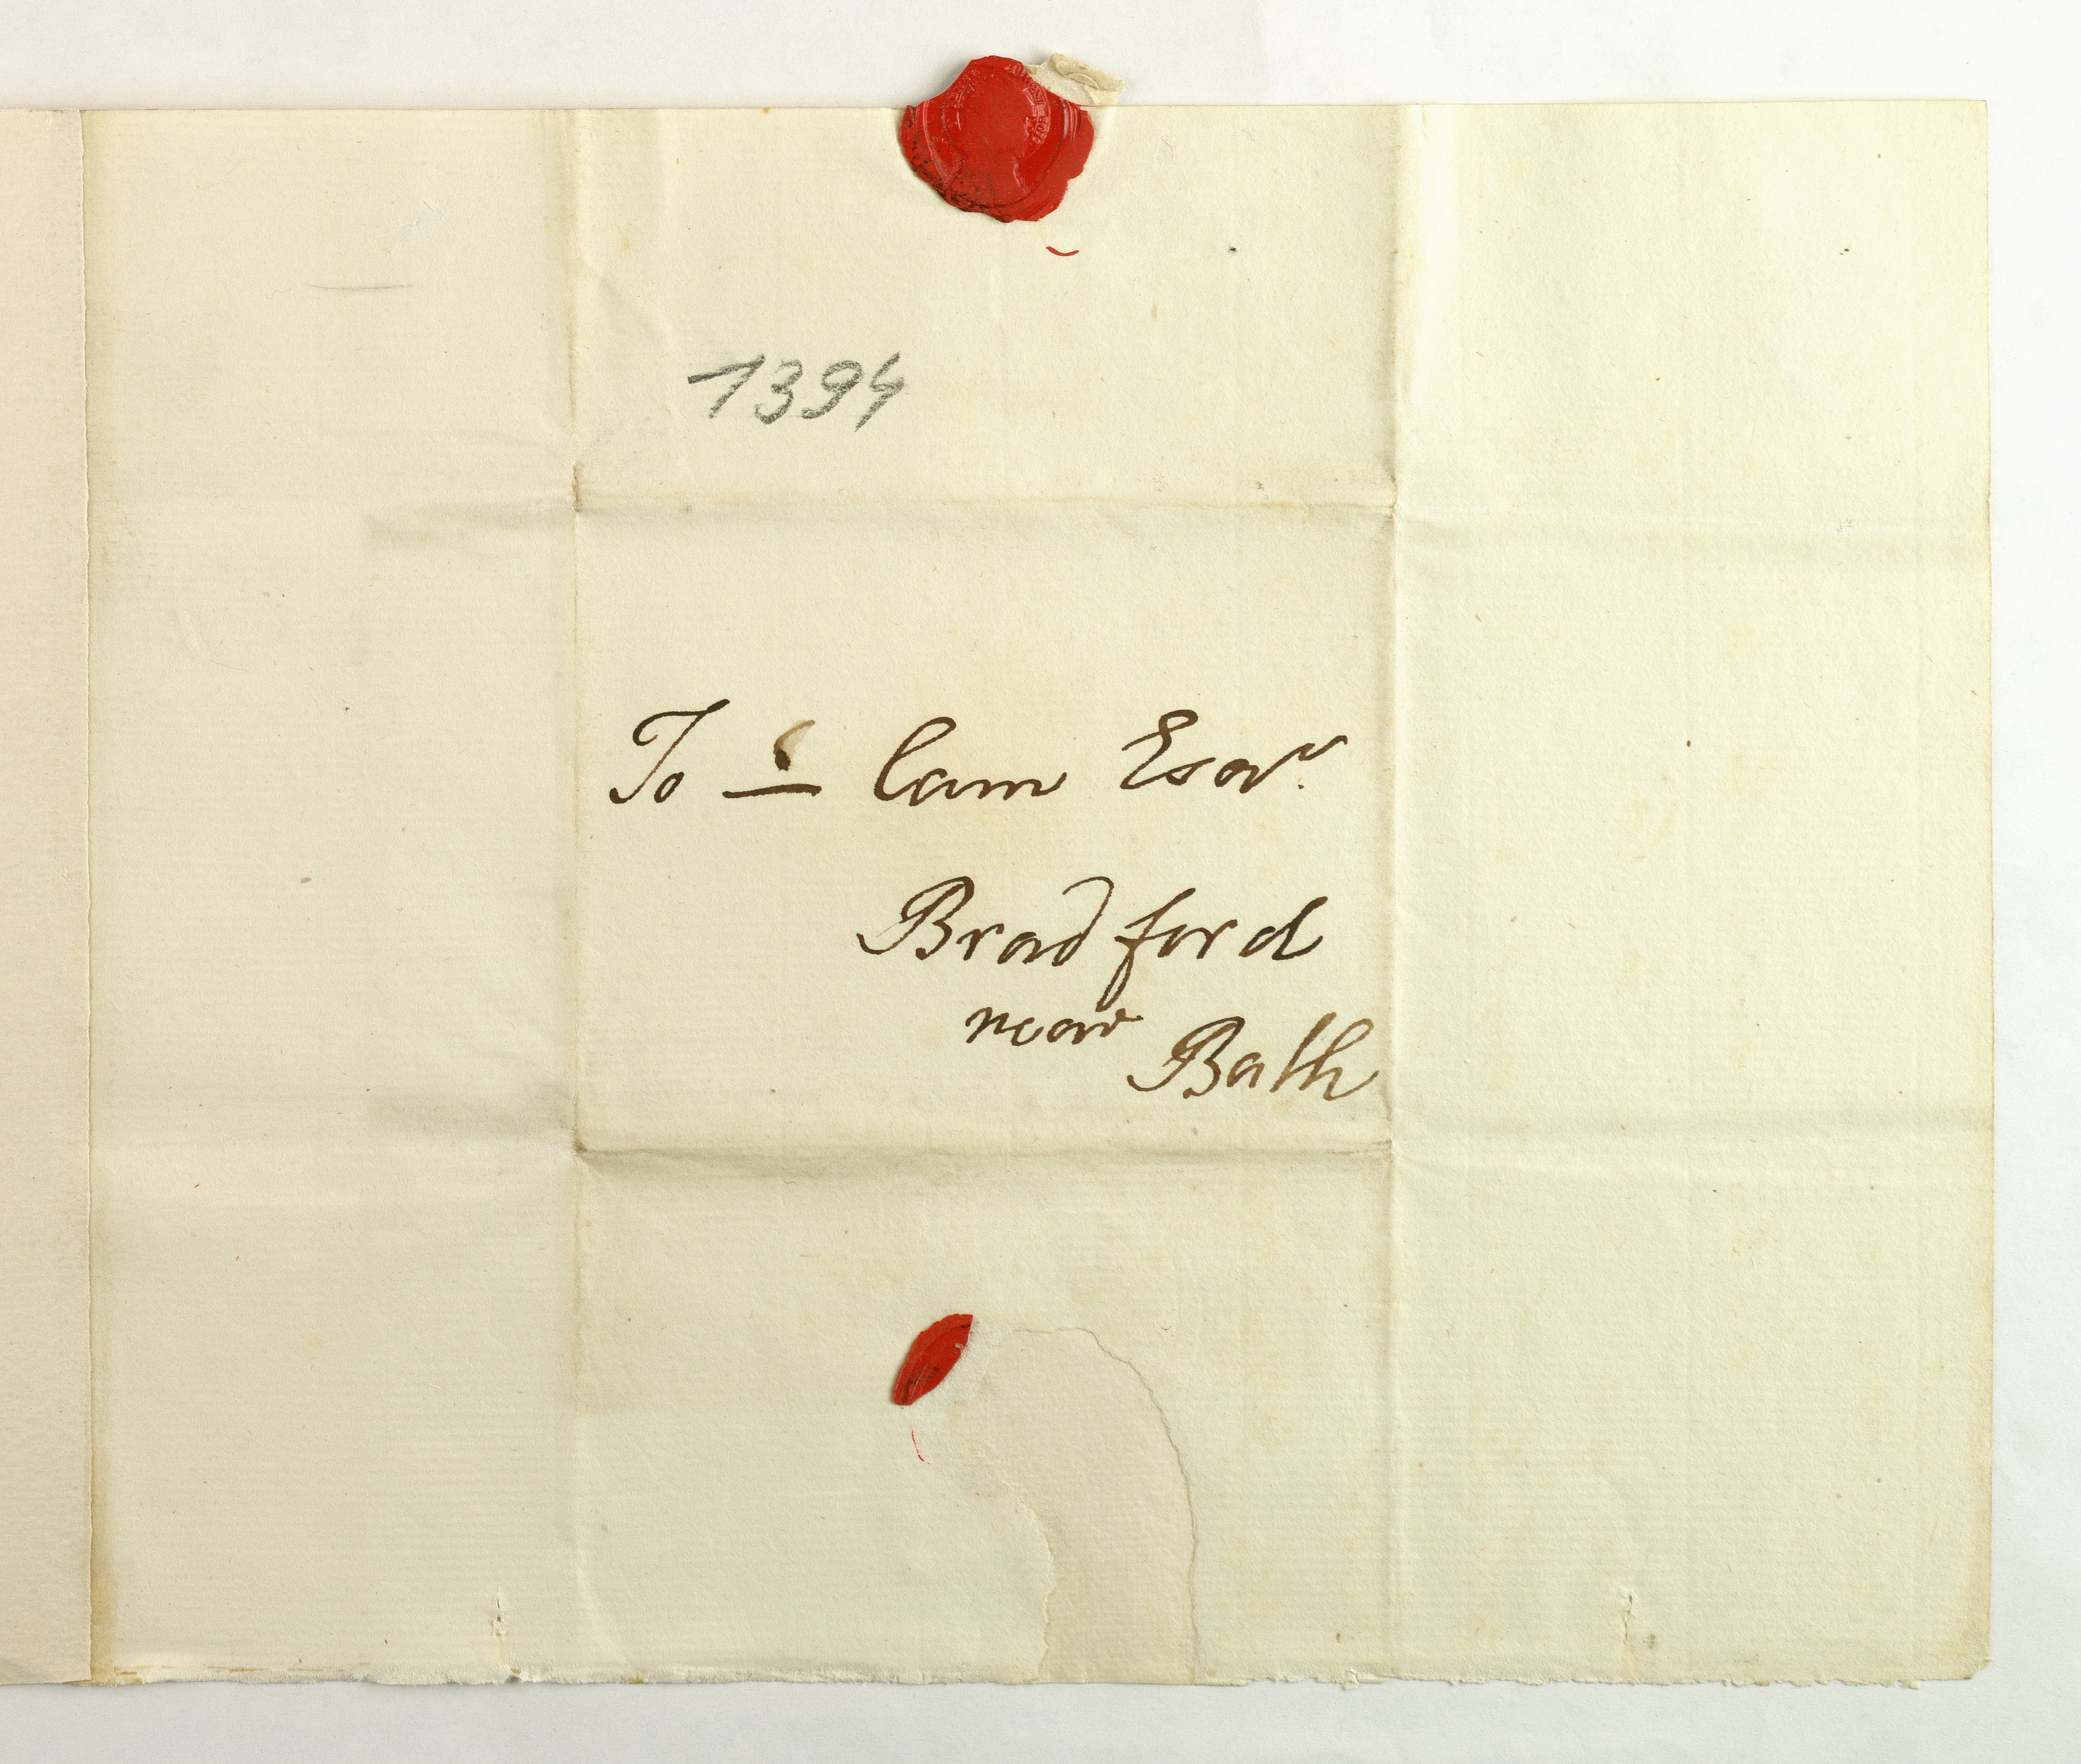 1394
To — Cam Esqr.
Bradford
near
Bath